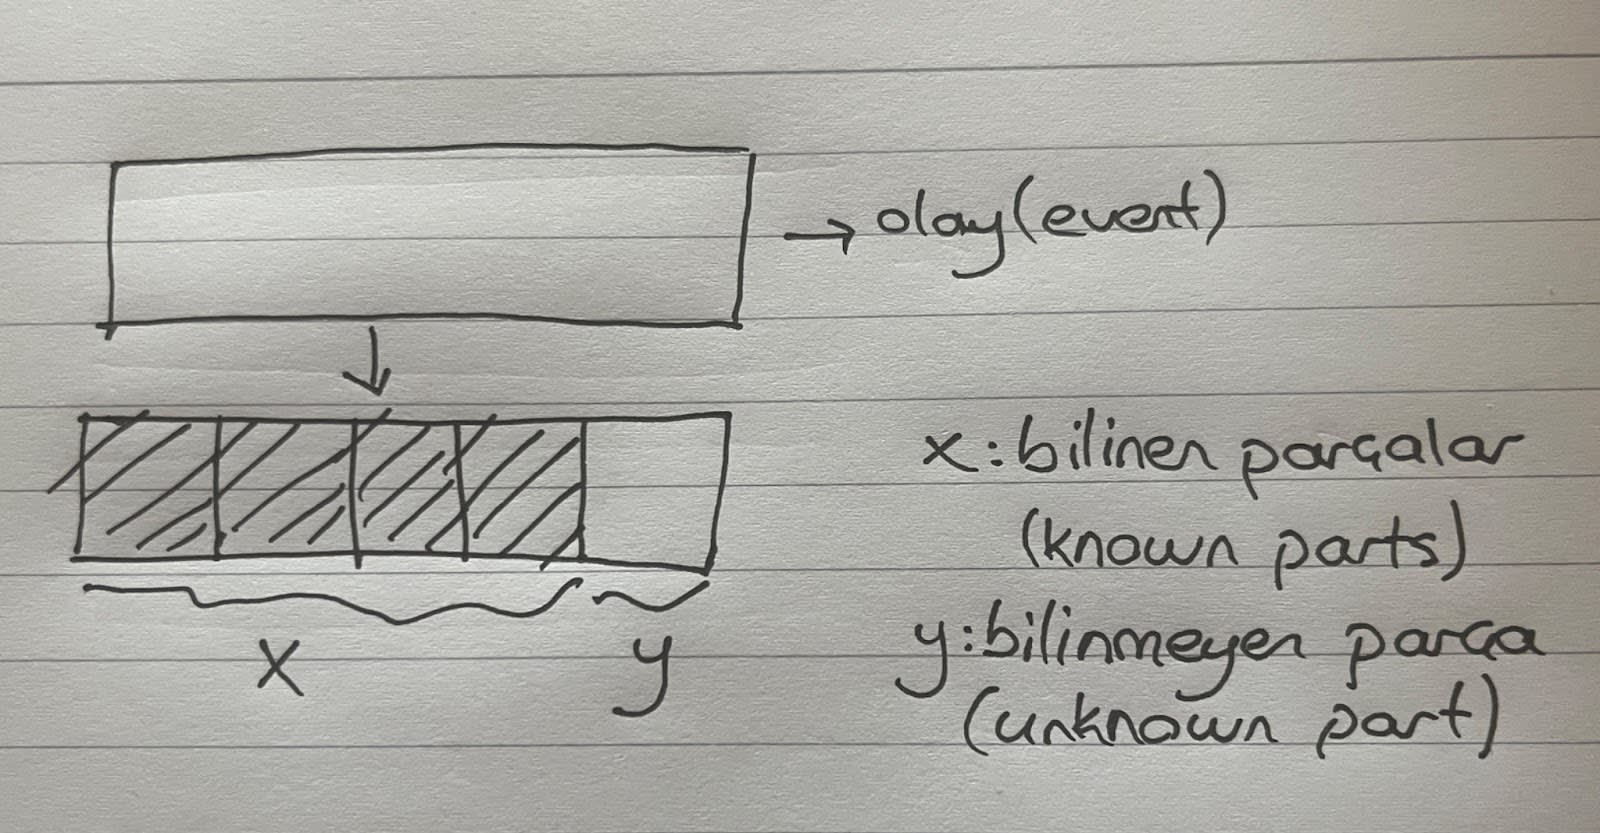 → olay (event)
x: bilinen parçalar
(known parts)
x
y
y: bilinmeyen parça
(unknown part)